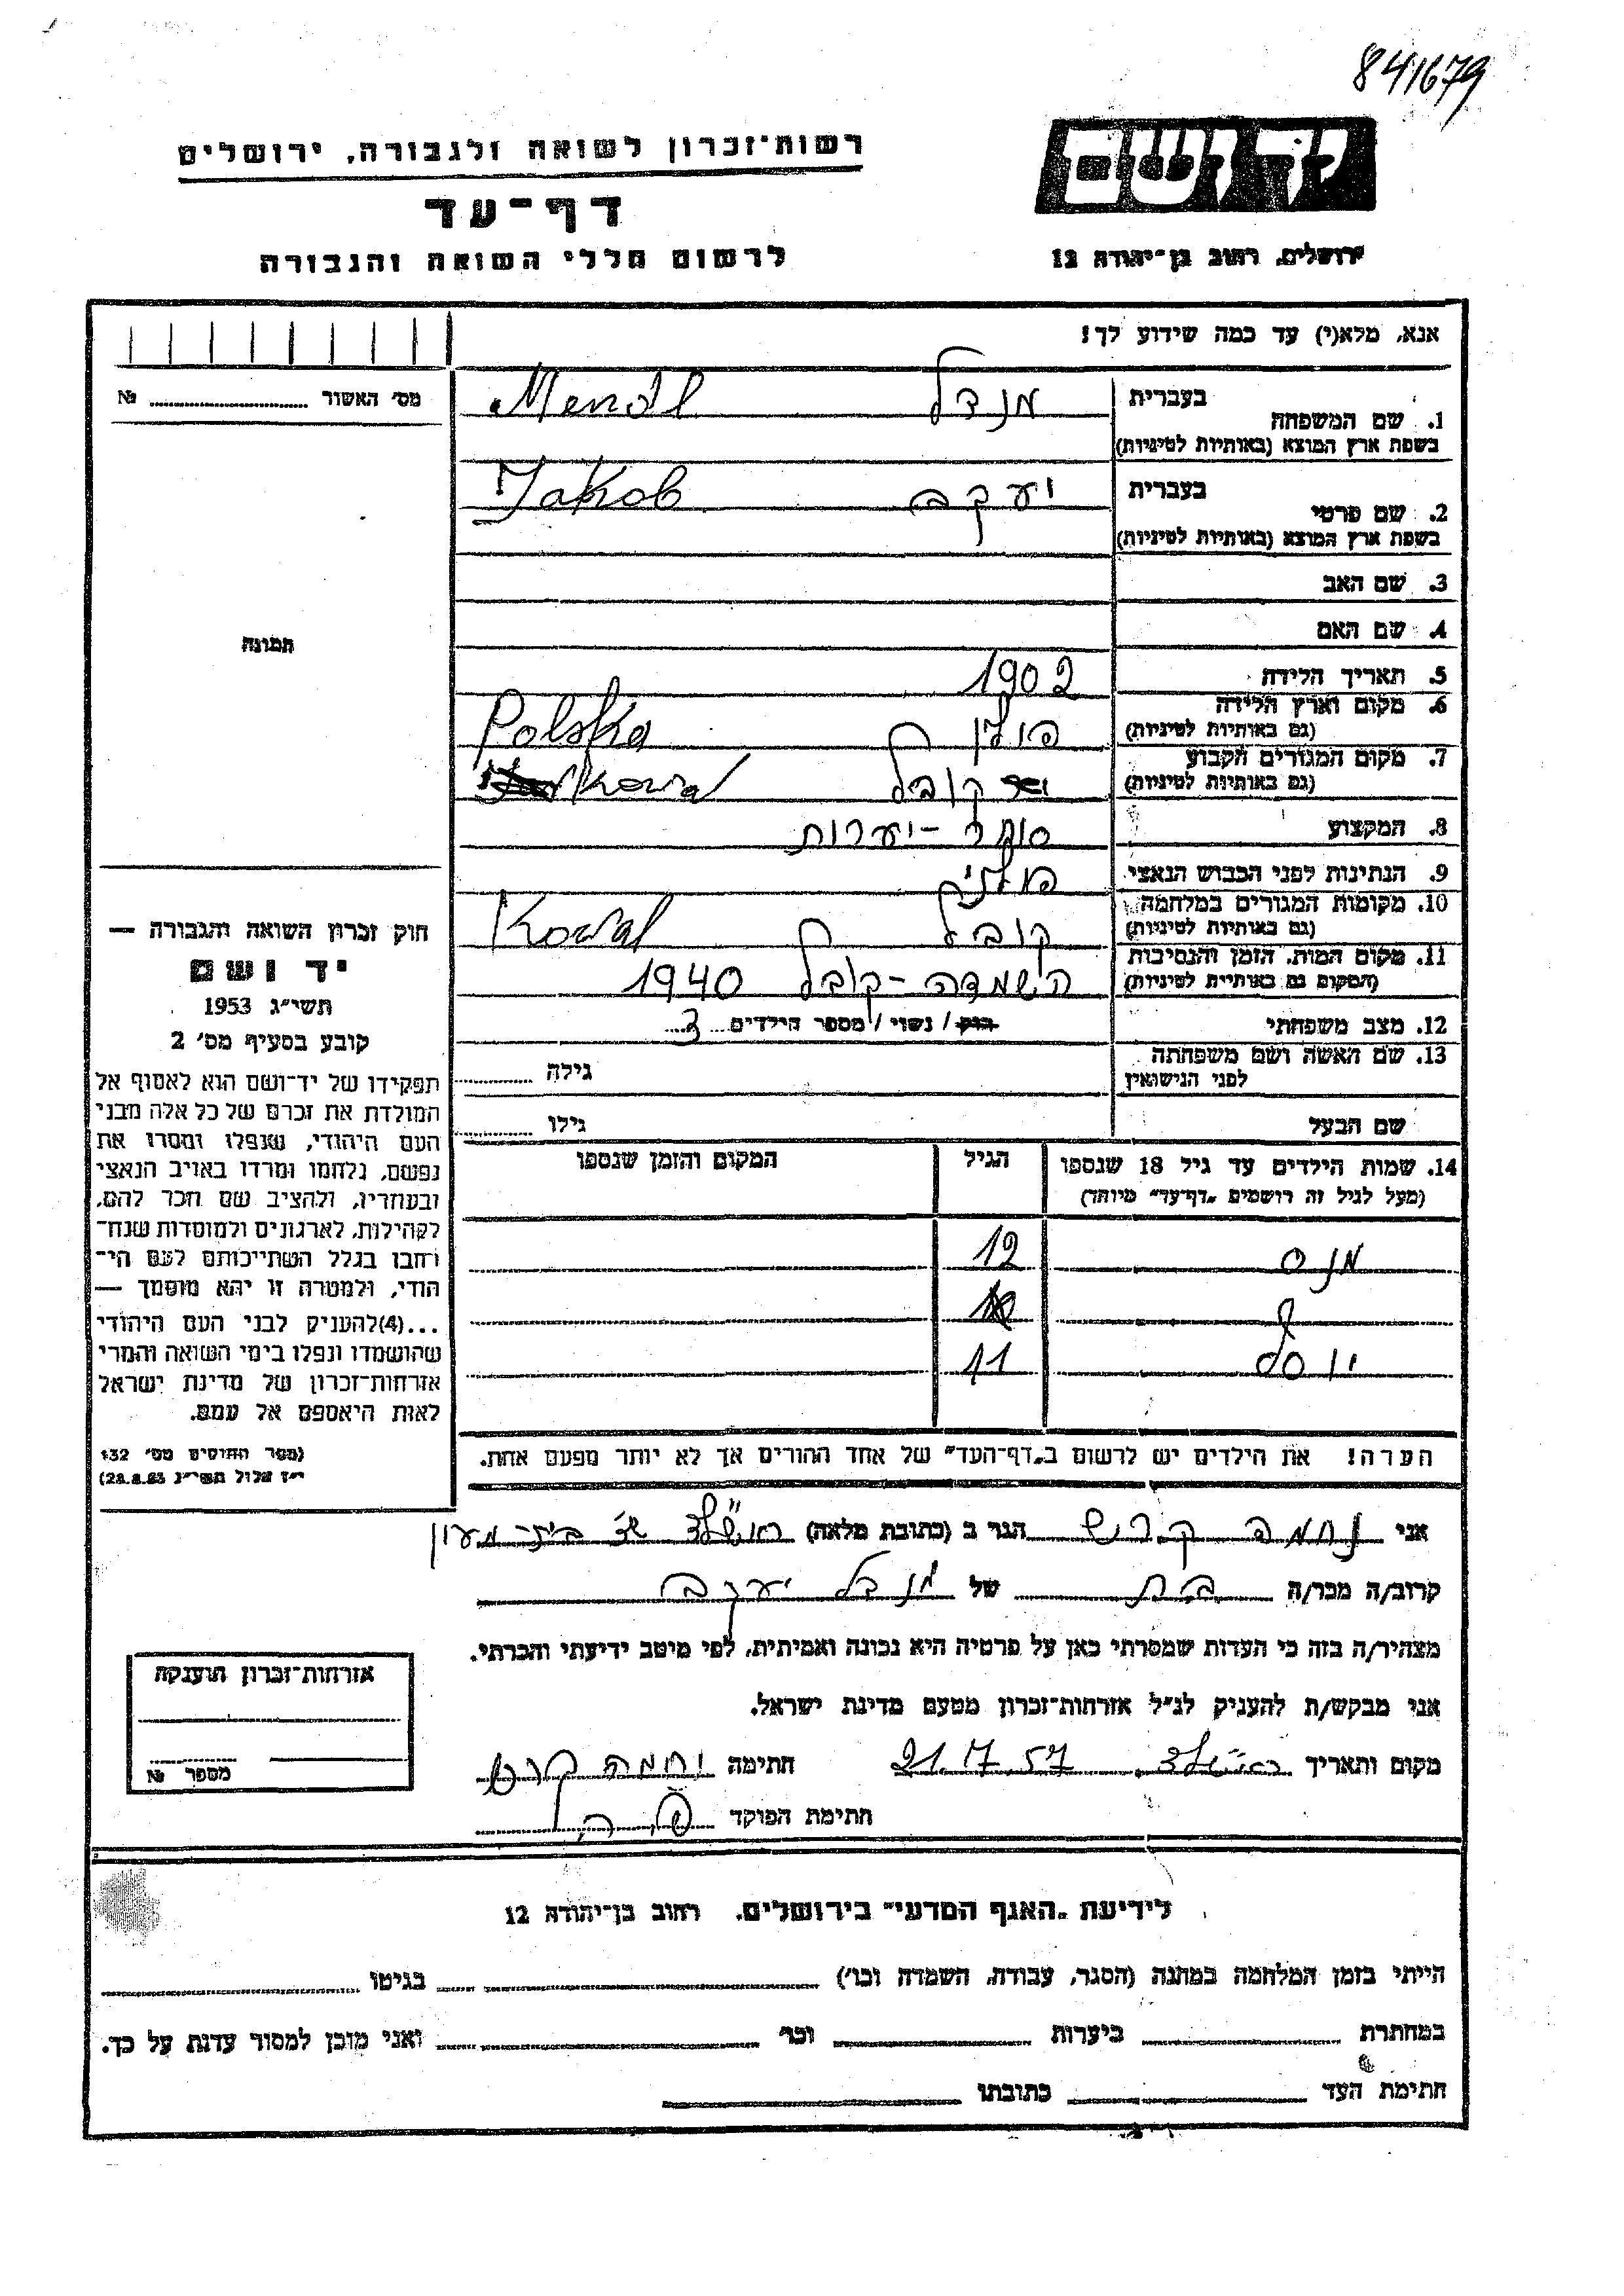 841679
יד ושם
ירושלים, רחוב בן־יהודה 12
רשות־זכרון לשואה ולגבורה, ירושלים
דף־עד
לרשום חללי השואה והגבורה
אנא, מלא(י) עד כמה שידוע לך!
מס׳ האשור № 
1. שם המשפחה
בעברית מנדל Mendl
בשפת ארץ המוצא (באותיות לטיניות)
2. שם פרטי
בעברית יעקב Jakob
בשפת ארץ המוצא (באותיות לטיניות)
3. שם האב
4. שם האם
5. תאריך הלידה 1902
6. מקום וארץ הלידה
(גם באותיות לטיניות) פולין Polska
7. מקום המגורים הקבוע
(גם באותיות לטיניות) קובל Kowal
8. המקצוע סוחר - יערות
9. הנתינות לפני הכבוש הנאצי פולנית
10. מקומות המגורים במלחמה
(גם באותיות לטיניות) קובל Kowal
11. מקום המות, הזמן והנסיבות
(המקום גם באותיות לטיניות) השמדה - קובל 1940
12. מצב משפחתי רוק / נשוי / מספר הילדים 3
13. שם האשה ושם משפחתה
לפני הנישואין גילה
שם הבעל גילו
14. שמות הילדים עד גיל 18 שנספו
(מעל לגיל זה רושמים „דף־עד״ מיוחד)
הגיל
המקום והזמן שנספו
12
יוסף 11
הערה! את הילדים יש לרשום ב„דף־העד״ של אחד ההורים אך לא יותר מפעם אחת.
תמונה
חוק זכרון השואה והגבורה —
יד ושם
תשי״ג 1953
קובע בסעיף מס׳ 2
תפקידו של יד־ושם הוא לאסוף אל
המולדת את זכרם של כל אלה מבני
העם היהודי, שנפלו ומסרו את
נפשם, נלחמו ומרדו באויב הנאצי
ובעוזריו, ולהציב שם וזכר להם,
לקהילות, לארגונים ולמוסדות שנח־
רבו בגלל השתייכותם לעם הי־
הודי, ולמטרה זו יהא מוסמך —
...(4)להעניק לבני העם היהודי
שהושמדו ונפלו בימי השואה והמרי
אזרחות־זכרון של מדינת ישראל
לאות היאספם אל עמם.
(ספר החוקים מס׳ 132
י״ז אלול תשי״ג 28.8.53)
אני נחמה קרש הגר ב (כתובת מלאה) ראשל״צ
קרוב/ה מכר/ה בת של מנדל יעקב
מצהיר/ה בזה כי העדות שמסרתי כאן על פרטיה היא נכונה ואמיתית, לפי מיטב ידיעתי והכרתי.
אני מבקש/ת להעניק לנ״ל אזרחות־זכרון מטעם מדינת ישראל.
מקום ותאריך ראשל״צ 21.7.57 חתימה נחמה קרש
חתימת הפוקד
אזרחות־זכרון הוענקה
מספר №
לידיעת „האגף המדעי״ בירושלים, רחוב בן־יהודה 12
הייתי בזמן המלחמה במחנה (הסגר, עבודה, השמדה וכו׳) בגיטו
במחתרת ביערות וכו׳ ואני מוכן למסור עדות על כך.
חתימת העד כתובתו